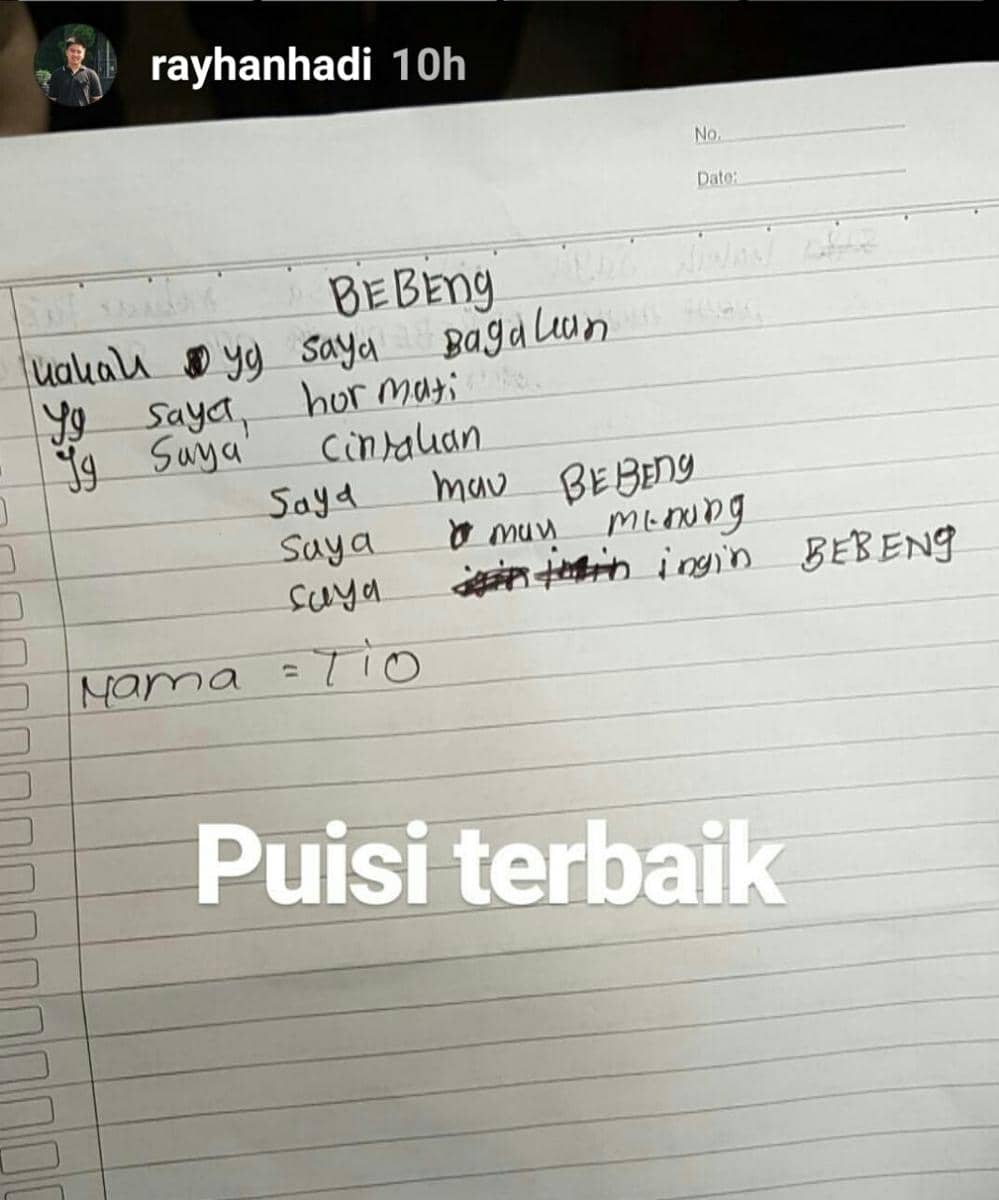 rayhanhadi 10h
No.
Date:
BEBEng
kakak yg saya Bagakan
Yg saya, hormati
Yg Saya cintakan
Saya mau BEBEng
Saya mau menung
saya ingin BEBENg
Nama = TiO
Puisi terbaik